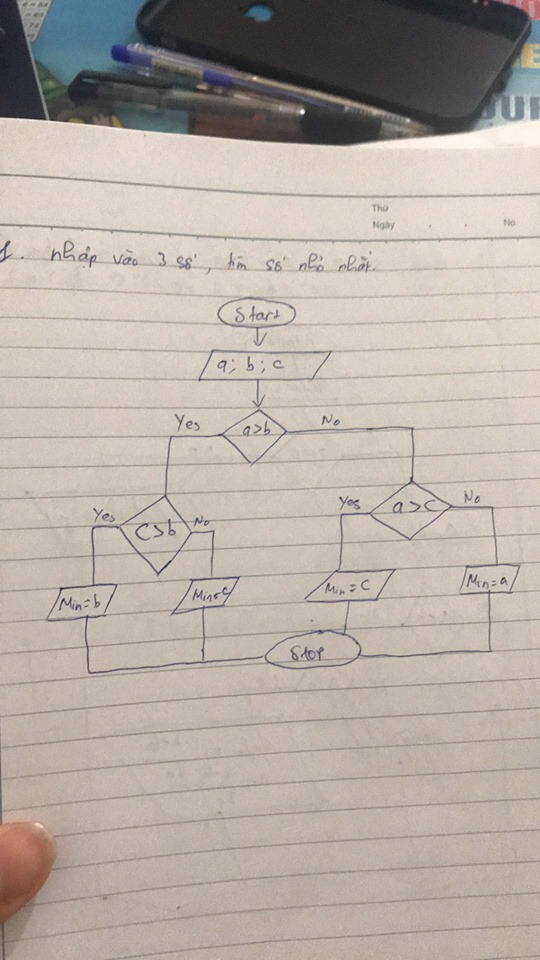 Thứ
Ngày . . No.
1. nhập vào 3 số, tìm số nhỏ nhất.
Start
a; b; c
Yes a>b No
Yes c>b No
Yes a>c No
Min=b
Min=c
Min=c
Min=a
Stop